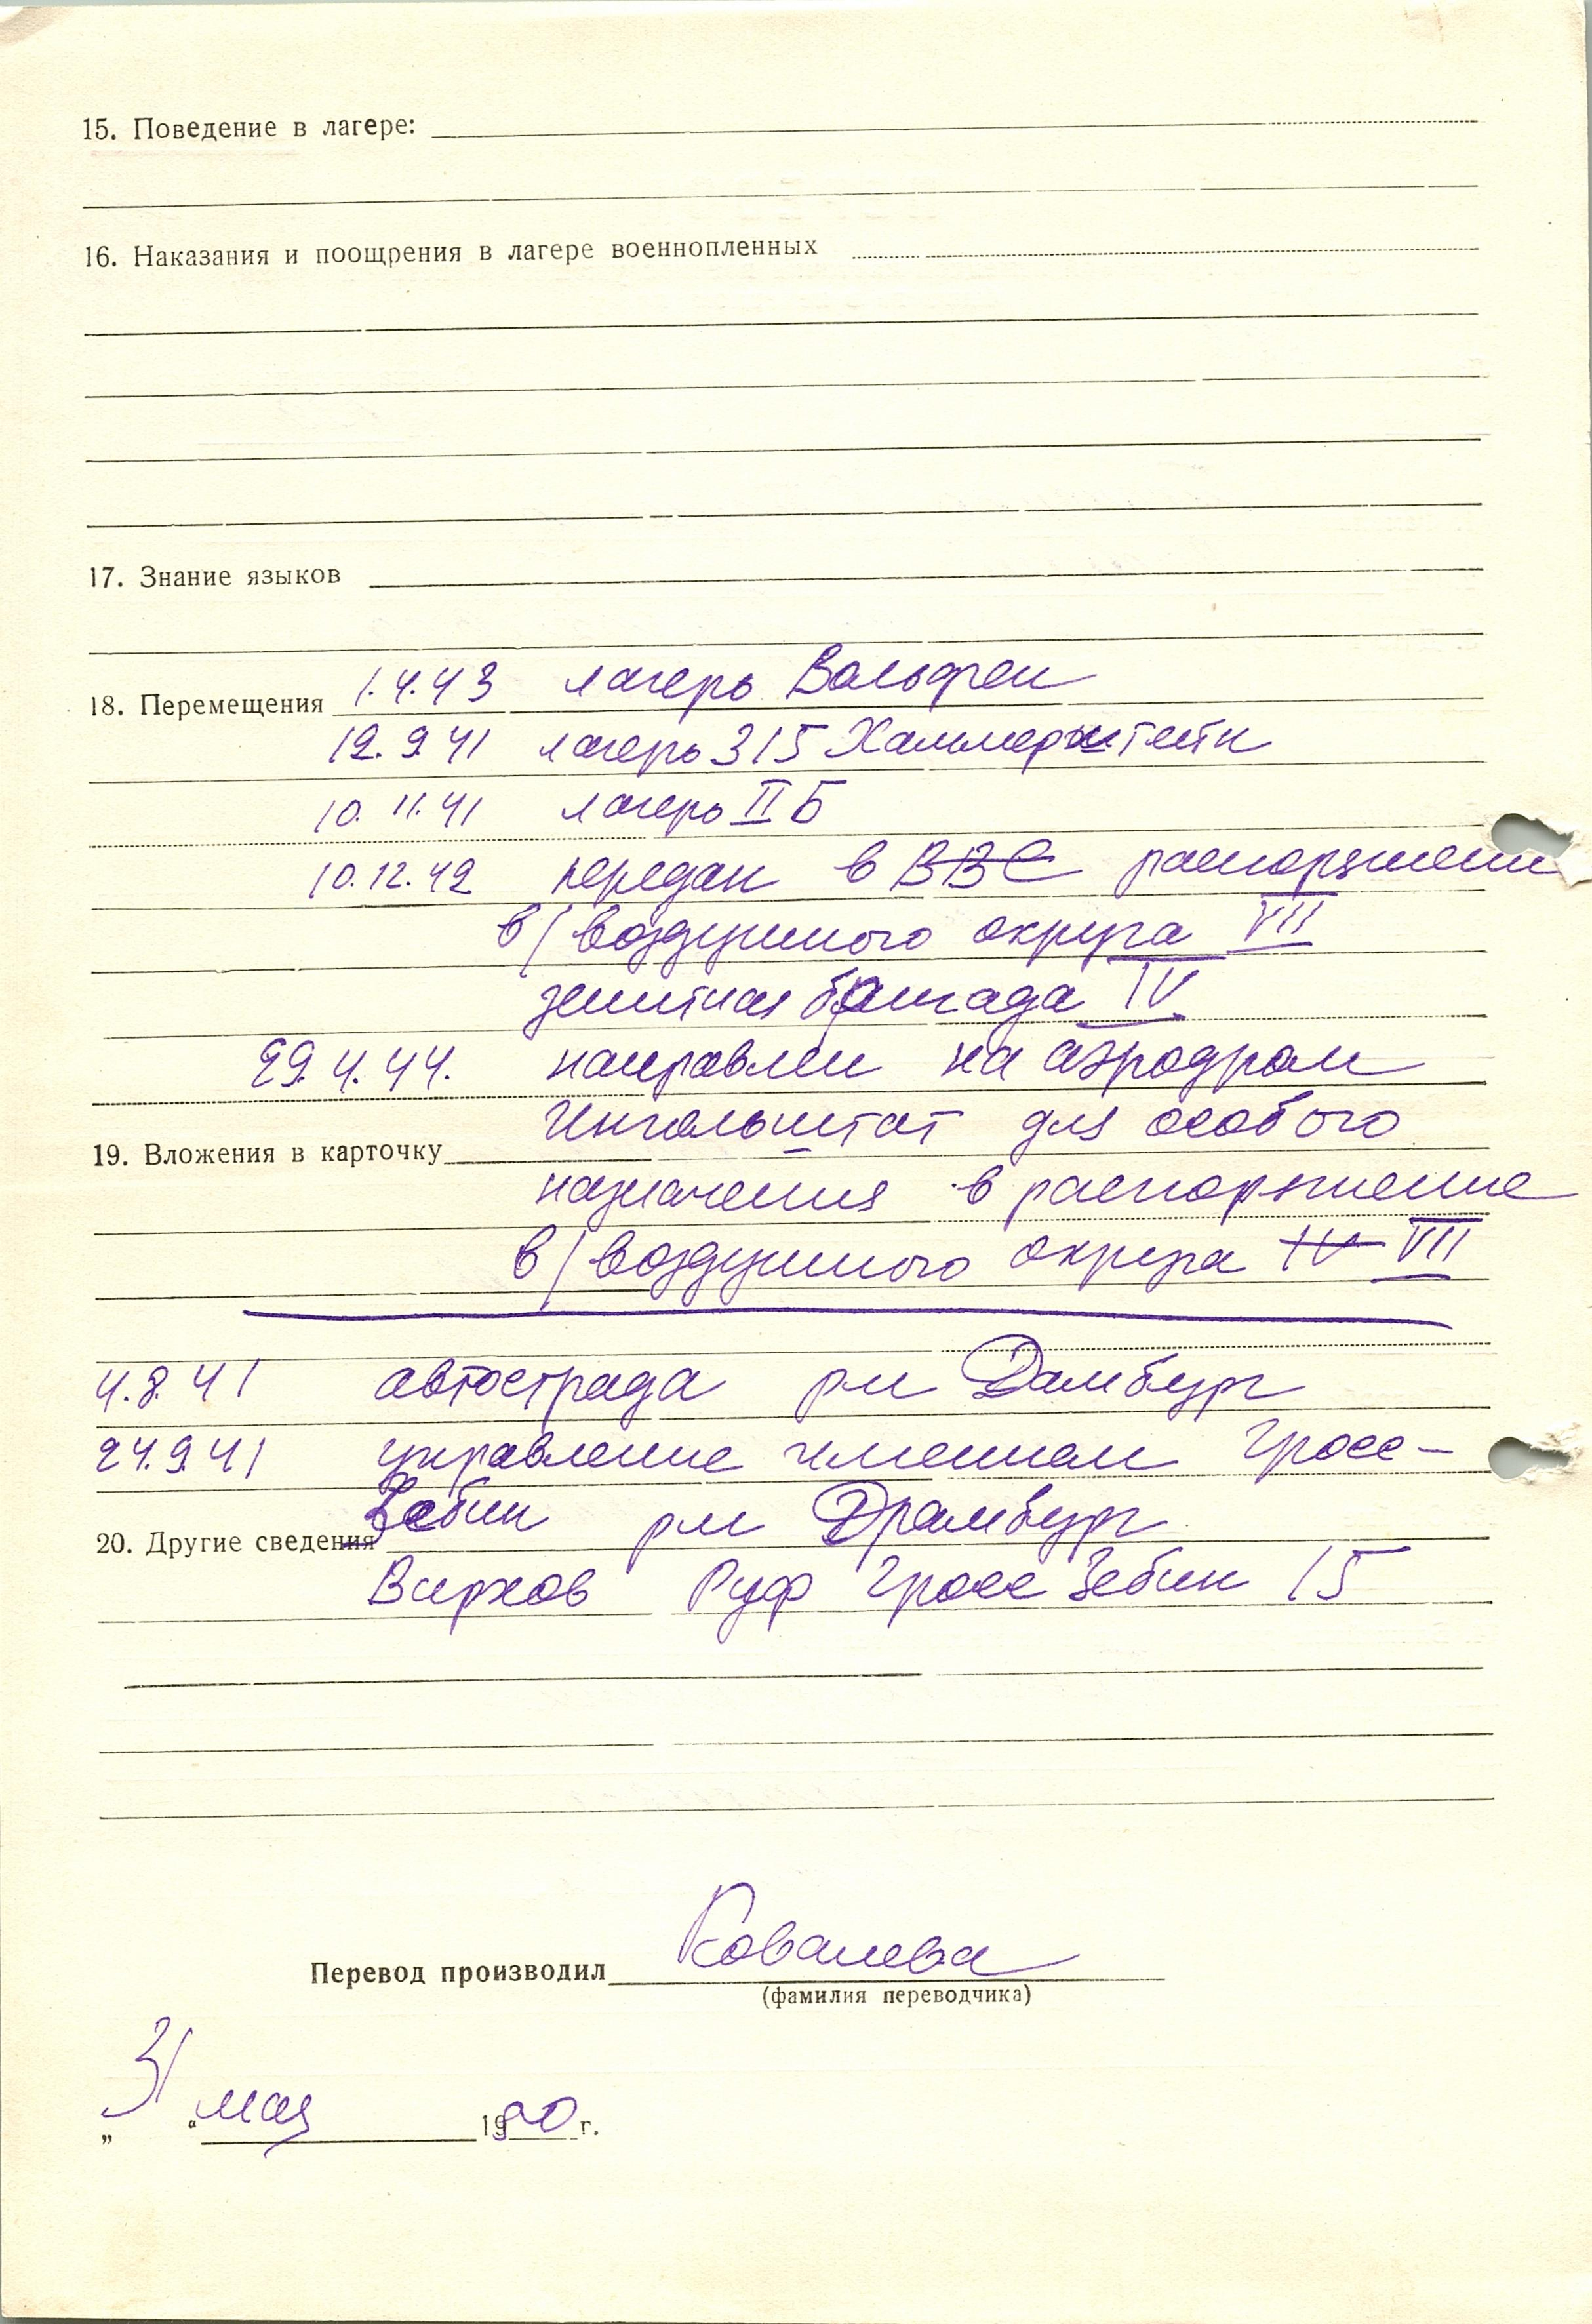 15. Поведение в лагере:
16. Наказания и поощрения в лагере военнопленных
17. Знание языков
18. Перемещения 1.4.43 лагерь Вольфен
12.9.41 лагерь 315 Хаммерштейн
10.11.41 лагерь II Б
10.12.42 передан в ВВС распоряжени
в/воздушного округа VII
зенитная бригада IV
29.4.44. направлен на аэродром
Ингольштат для особого
19. Вложения в карточку
назначения в распоряжение
в/воздушного округа IV VII
4.8.41 автострада рш Дамбург
24.9.41 управление имением Гросс-
Зебин рш Драмбург
20. Другие сведения
Вирхов Руф Гросс Зебин 15
Перевод производил Ковалева
(фамилия переводчика)
„31“ мая 1980 г.